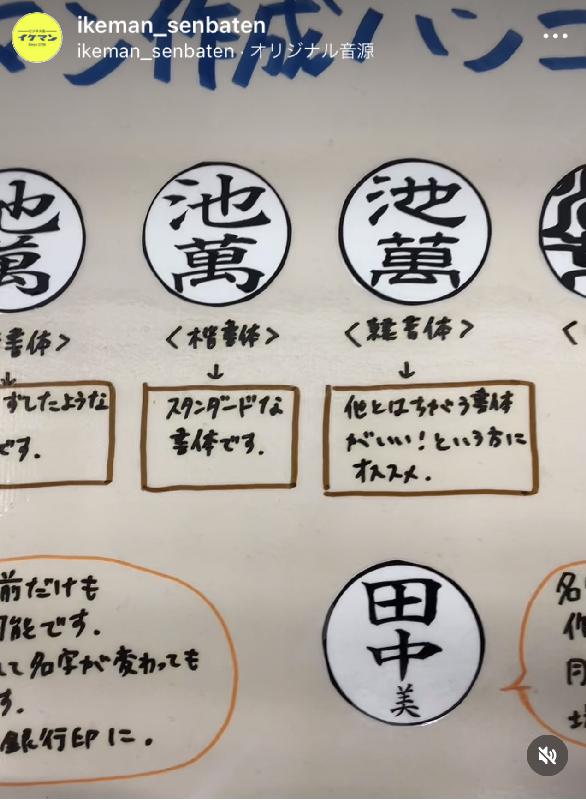 ikeman_senbaten
ikeman_senbaten・オリジナル音源
イケマン
マン作成ハンコ
池
萬
池
萬
池
萬
書体>
<楷書体>
<隷書体>
<
ずしたような
です。
スタンダードな
書体です.
他とはちがう書体
がいい!という方に
オススメ.
前だけも
可能です.
して名字が変わっても
す.
銀行印に.
田
中
美
名
作